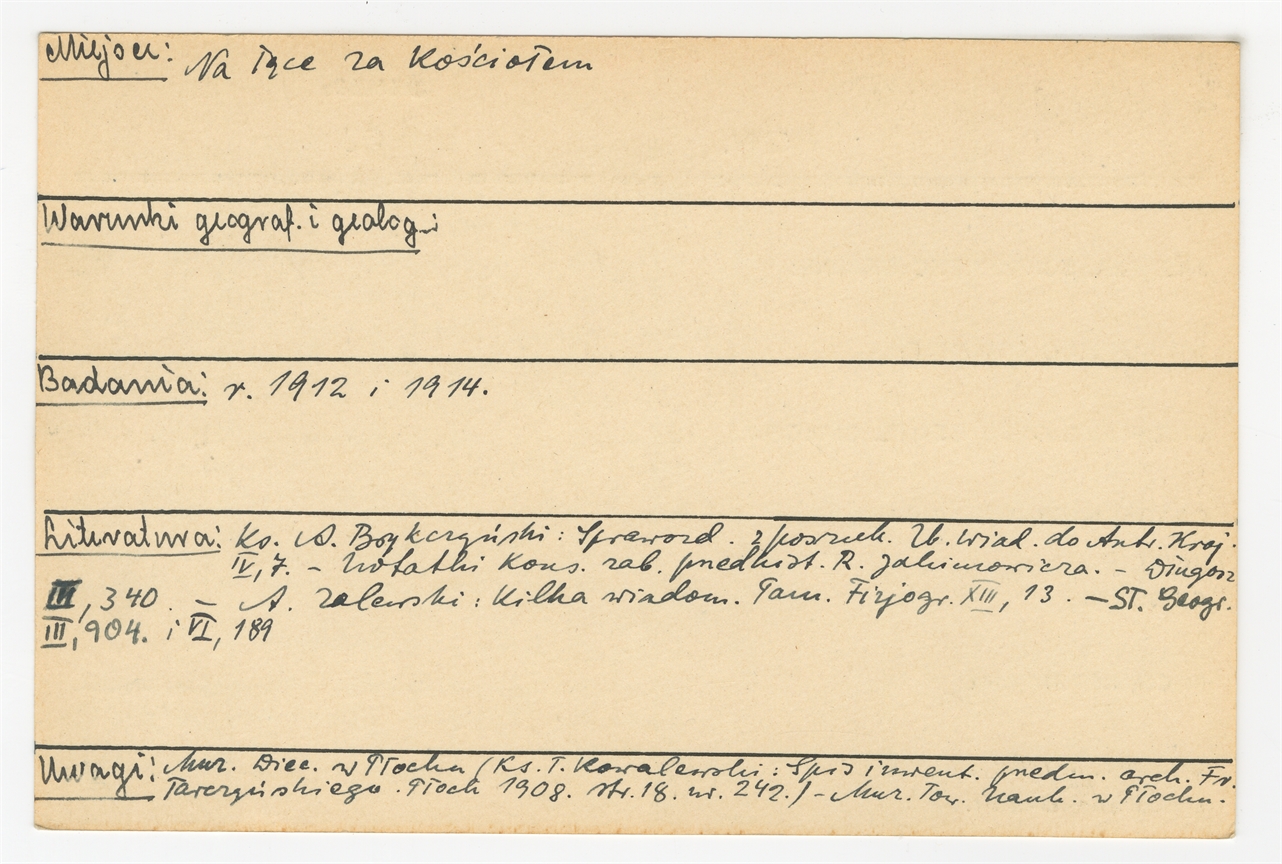 Miejsce: Na łące za kościołem
Warunki geograf. i geolog.:
Badania: r. 1912 i 1914.
Literatura: Ks. A. Brykczyński: Sprawozd. z poszuk. Zb. wiad. do Antr. Kraj.
IV, 7. – Notatki Kons. zab. przedhist. R. Jakimowicza. – Długosz
III, 340. – A. Zalewski: Kilka wiadom. Pam. Fizjogr. XIII, 13. – Sł. Geogr.
III, 904. i VI, 189
Uwagi: Muz. Diec. w Płocku (Ks. T. Kowalewski: Spis inwent. przedm. arch. Fr.
Tarczyńskiego. Płock 1908. str. 18. nr. 242.) – Muz. Tow. Nauk. w Płocku.